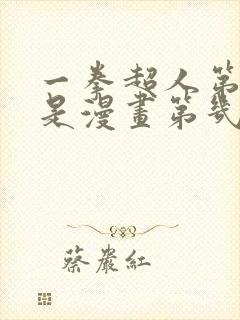 一拳超人第
是漫畫第幾
蔡巖紅